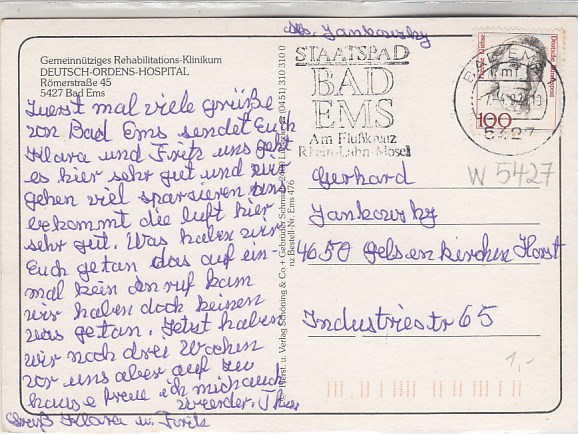 Abs. Jankowsky
Gemeinnütziges Rehabilitations-Klinikum
DEUTSCH-ORDENS-HOSPITAL
Römerstraße 45
5427 Bad Ems
Zuerst mal viele grüße
von Bad Ems sendet Euch
Klara und Fritz uns geht
es hier sehr gut und wir
gehen viel sparsieren uns
bekommt die luft hier
sehr gut. Was haben wir
Euch getan das auf ein
mal kein anruf kam
wir haben doch keinen
was getan. Jetzt haben
wir noch drei Wochen
vor uns aber auf zu
hause freue ich mich auch
wieder. Tschüs
Gruß Klara u. Fritz
nz Bestell-Nr. Ems 476
Herst. u. Verlag Schöning & Co + Gebrüder Schmidt (0451) 310 310 0
STAATSBAD
BAD
EMS
Am Flußkreuz
Rhein-Lahn-Mosel
BAD EMS
5427
Deutsche Bundespost
100
W 5427
Gerhard
Jankowsky
4650 Gelsenkirchen Horst
Industriestr 65
1,-